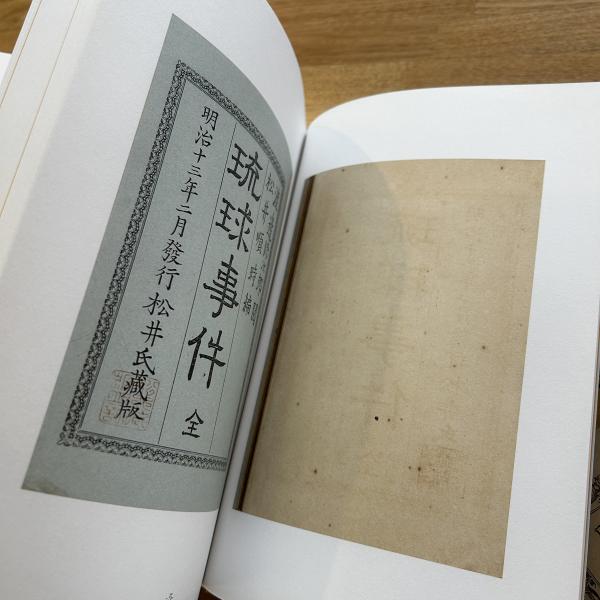 松井順時編
琉球事件 全
明治十三年二月發行 松井氏藏版